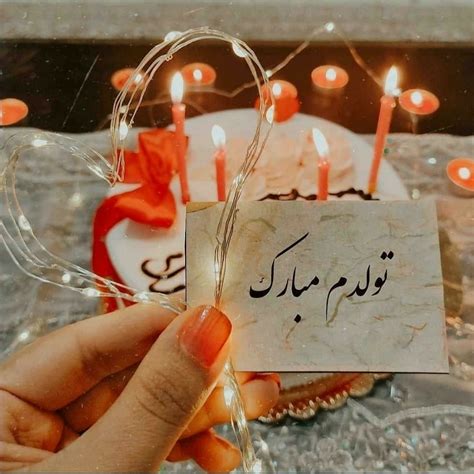 تولدم مبارک